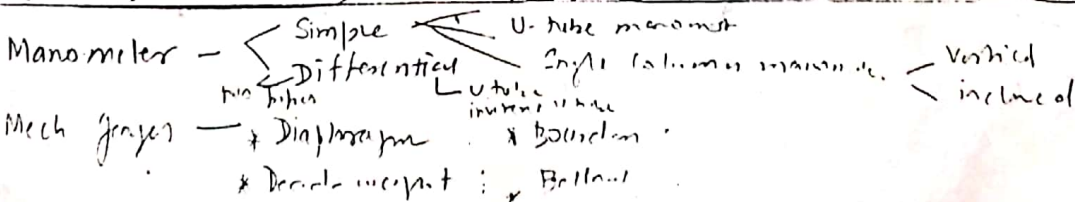 Manometer - Simple U-tube manomet
Single Column manomete. Vertical
Differential inclined
two pipes U tube
inverted U tube
Mech gauges - * Diaphragm * Bourdon
* Dead weight * Bellows